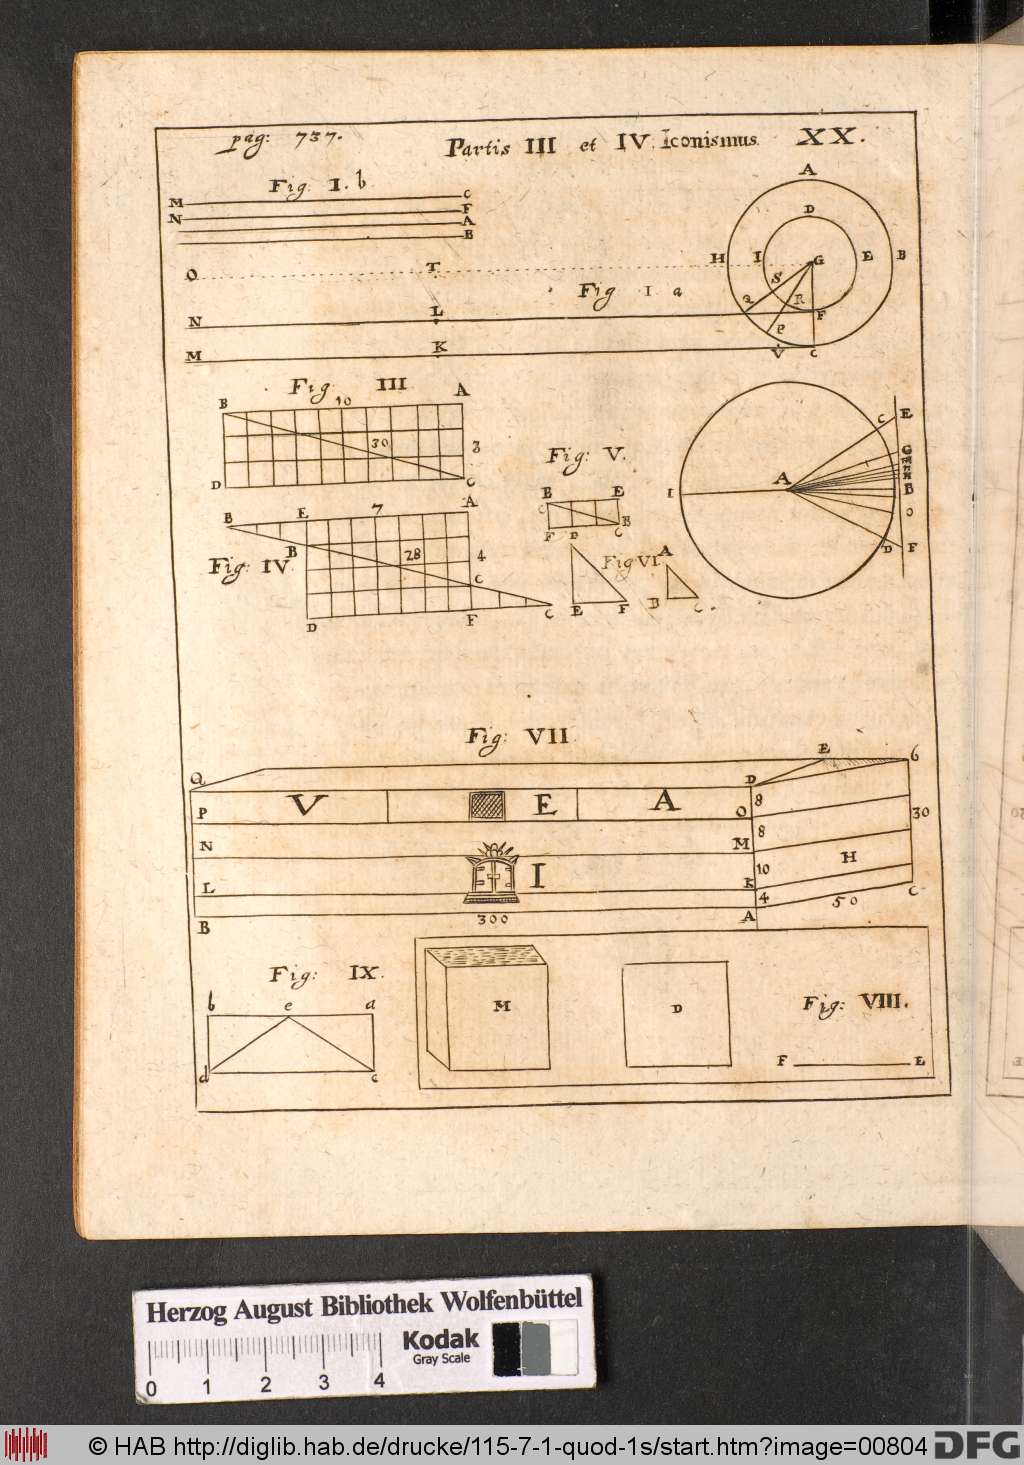 pag: 737. Partis III et IV. Iconismus. XX.
Fig: I. b
M C
F
N A
B
O T
N L
M K
Fig I a
A
D
H I G E B
S
Q R F
P
V C
Fig: III
B 10 A
30 3
D C
Fig: V.
B E
C B
F D C
C E
G
A
I B
O
D F
B E 7 A
B 28 4
Fig: IV.
C
D F C
Fig VI.
A
E F B C
Fig: VII.
E 6
Q D
P V E A O 8 30
N M 8
I H
L K 10
4 C
B 300 A 50
Fig: IX.
b e a
d c
M
D
Fig: VIII.
F E
Herzog August Bibliothek Wolfenbüttel
Kodak
Gray Scale
0 1 2 3 4
© HAB http://diglib.hab.de/drucke/115-7-1-quod-1s/start.htm?image=00804 DFG